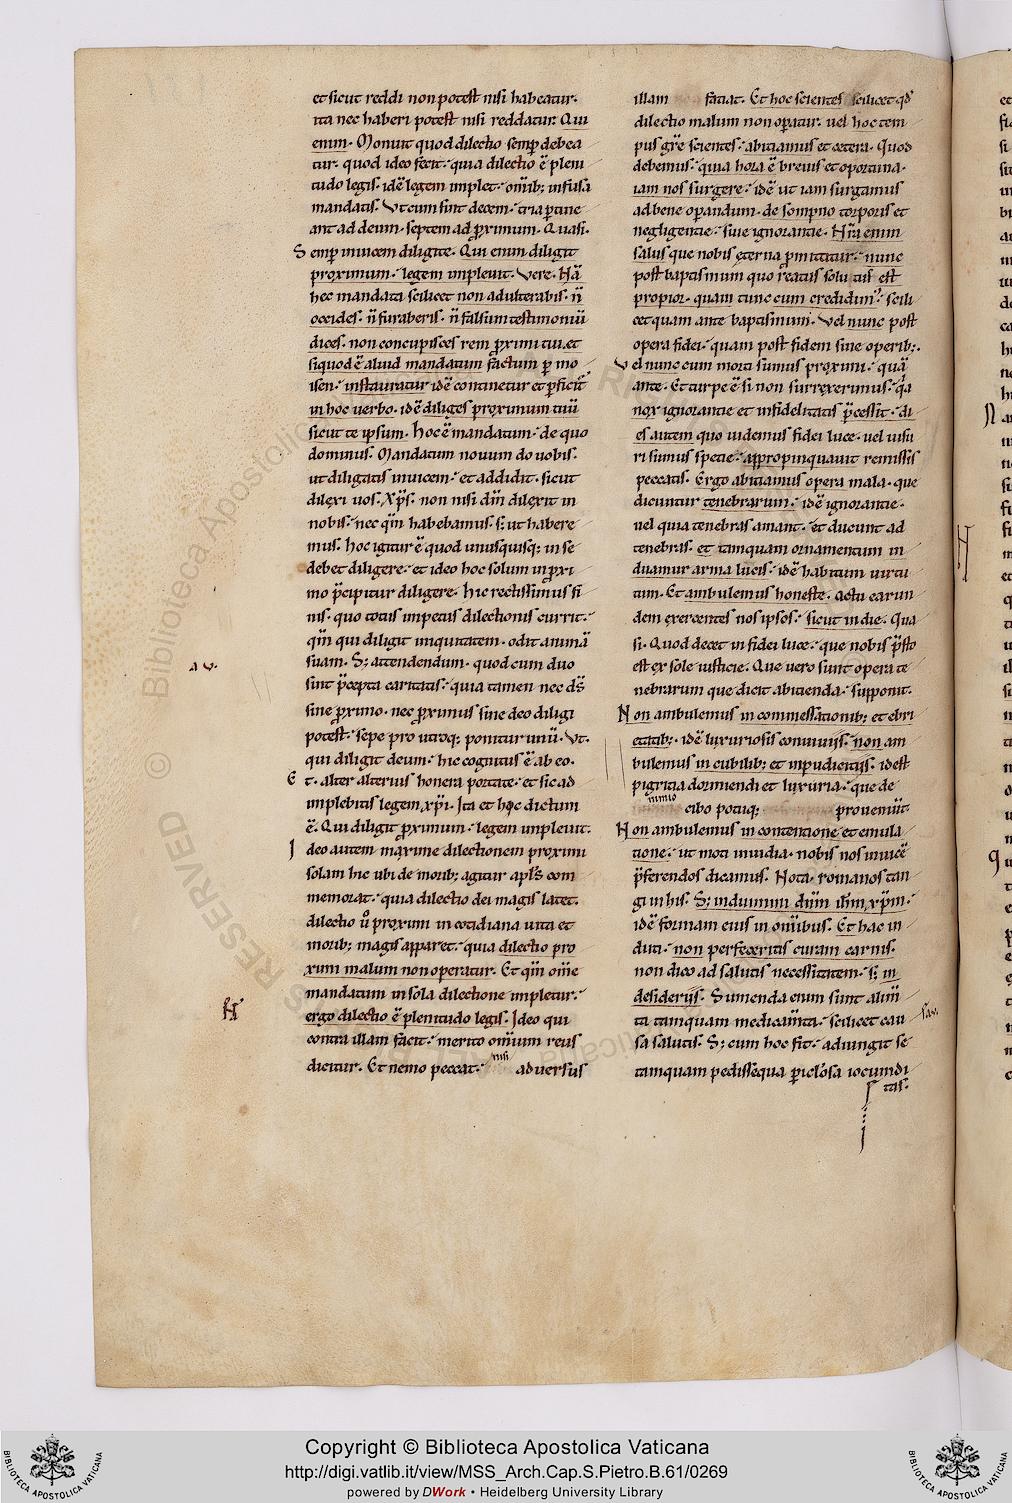 et sicut reddi non potest nisi habeatur.
ita nec haberi potest nisi reddatur: Qui
enim. Monuit quod dilectio semp debea
tur. quod ideo fecit: quia dilectio ē pleni
tudo legis. idē legem implet: om̄ib; infusa
mandatis. Vt cum sint decem: tria ꝑtine
ant ad deum. septem ad ꝓximum. Quasi.
Semꝑ inuicem diligite. Qui enim diligit
proximum: legem impleuit. Vere. Nā
hec mandata scilicet non adulterabis. n̄
occides. n̄ furaberis. n̄ falsum testimoniū
dices. non concupisces rem ꝓximi tui. et
siquod ē aliud mandatum factum ꝑ mo
isen: instauratur idē continetur et ꝑficit᷑
in hoc uerbo. idē diliges proximum tuū
sicut te ipsum. hoc ē mandatum: de quo
dominus. Mandatum nouum do uobis.
ut diligatis inuicem: et addidit. sicut
dilexi uos. Xp̄s. non nisi dm̄ dilexit in
nobis: nec qm̄ habebamus. s; ut habere
mus. hoc igitur ē quod unusquisq; in se
debet diligere: et ideo hoc solum in ꝓxi
mo p̄cipitur diligere. hic rectissimus fi
nis. quo totus impetus dilectionis currit:
qm̄ qui diligit iniquitatem. odit animā
suam. S; attendendum. quod cum duo
sint p̄cepta caritatis: quia tamen nec ds̄
sine ꝓximo. nec ꝓximus sine deo diligi
potest: sepe pro utroq; ponitur unū. Vt.
qui diligit deum: hic cognitus ē ab eo.
Et. alter alterius honera portate: et sic ad
implebitis legem xp̄i. Ita et hęc dictum
ē. Qui diligit ꝓximum: legem impleuit.
Ideo autem maxime dilectionem proximi
solam hic ubi de morib; agitur apl̄s com
memorat: quia dilectio dei magis latet.
dilectio u̾ proximi in cotidiana uita et
morib; magis apparet: quia dilectio pro
ximi malum non operatur. Et qm̄ om̄e
mandatum in sola dilectione impletur:
ergo dilectio ē plenitudo legis. Ideo qui
contra illam facit: merito om̄ium reus
dicitur. Et nemo peccat: nisi aduersus
illam faciat. Et hoc scientes scilicet qd̾
dilectio malum non oꝑatur. uel hoc tem
pus gr̄e scientes: abiciamus et cetera. Quod
debemus: quia hora ē breuis et oportuna.
iam nos surgere: idē ut iam surgamus
ad bene oꝑandum. de sompno torporis et
negligentie: siue ignorantie. Nr̄a enim
salus que nobis ęterna ꝓmittitur: nunc
post baptismum quo reatus solutus est
propior. quam tunc cum credidim᷒: scili
cet quam ante baptismum. Vel nunc post
opera fidei: quam post fidem sine operib;.
Vel nunc cum morti sumus proximi: quā
ante. Et turpe ē si non surrexerimus: q̄a
nox ignorantie et infidelitatis p̄cessit: di
es autem quo uidemus fidei luce. uel uisu
ri sumus specie: appropinquauit remissis
peccatis. Ergo abiciamus opera mala. que
dicuntur tenebrarum: idē ignorantie.
uel quia tenebras amant: et ducunt ad
tenebras. et tamquam ornamentum in
duamur arma lucis: idē habitum uirtu
tum. Et ambulemus honeste. Actu earun
dem exercentes nos ipsos: sicut in die. Qua
si. Quod decet in fidei luce: que nobis p̄sto
est ex sole iusticie. Que uero sunt opera te
nebrarum que dicit abicienda: supponit.
Non ambulemus in commessationib; et ebri
etatib;. idē luxuriosis conuiuijs. non am
bulemus in cubilib; et inpudicitijs. idest
pigritia dormiendi et luxuria: que de
nimio cibo potuq; proueniūt
Non ambulemus in contentione et emula
tione: ut moti inuidia. nobis nos inuicē
p̄ferendos dicamus. Nota. romanos tan
gi in his. S; induimini dn̄m ih̄m xp̄m.
idē formam eius in om̄ibus. Et hac in
duti: non perfeceritis curam carnis.
non dico ad salutis necessitatem: s; in
desiderijs. Sumenda enim sunt alim̄
ta tamquam medicam̄ta: scilicet cau
sa salutis. S; cum hoc fit: adiungit se
tamquam pedissequa ꝑiculosa iocundi
tas.
a v.
N
Copyright © Biblioteca Apostolica Vaticana
http://digi.vatlib.it/view/MSS_Arch.Cap.S.Pietro.B.61/0269
powered by DWork • Heidelberg University Library
BIBLIOTECA APOSTOLICA VATICANA
BIBLIOTECA APOSTOLICA VATICANA